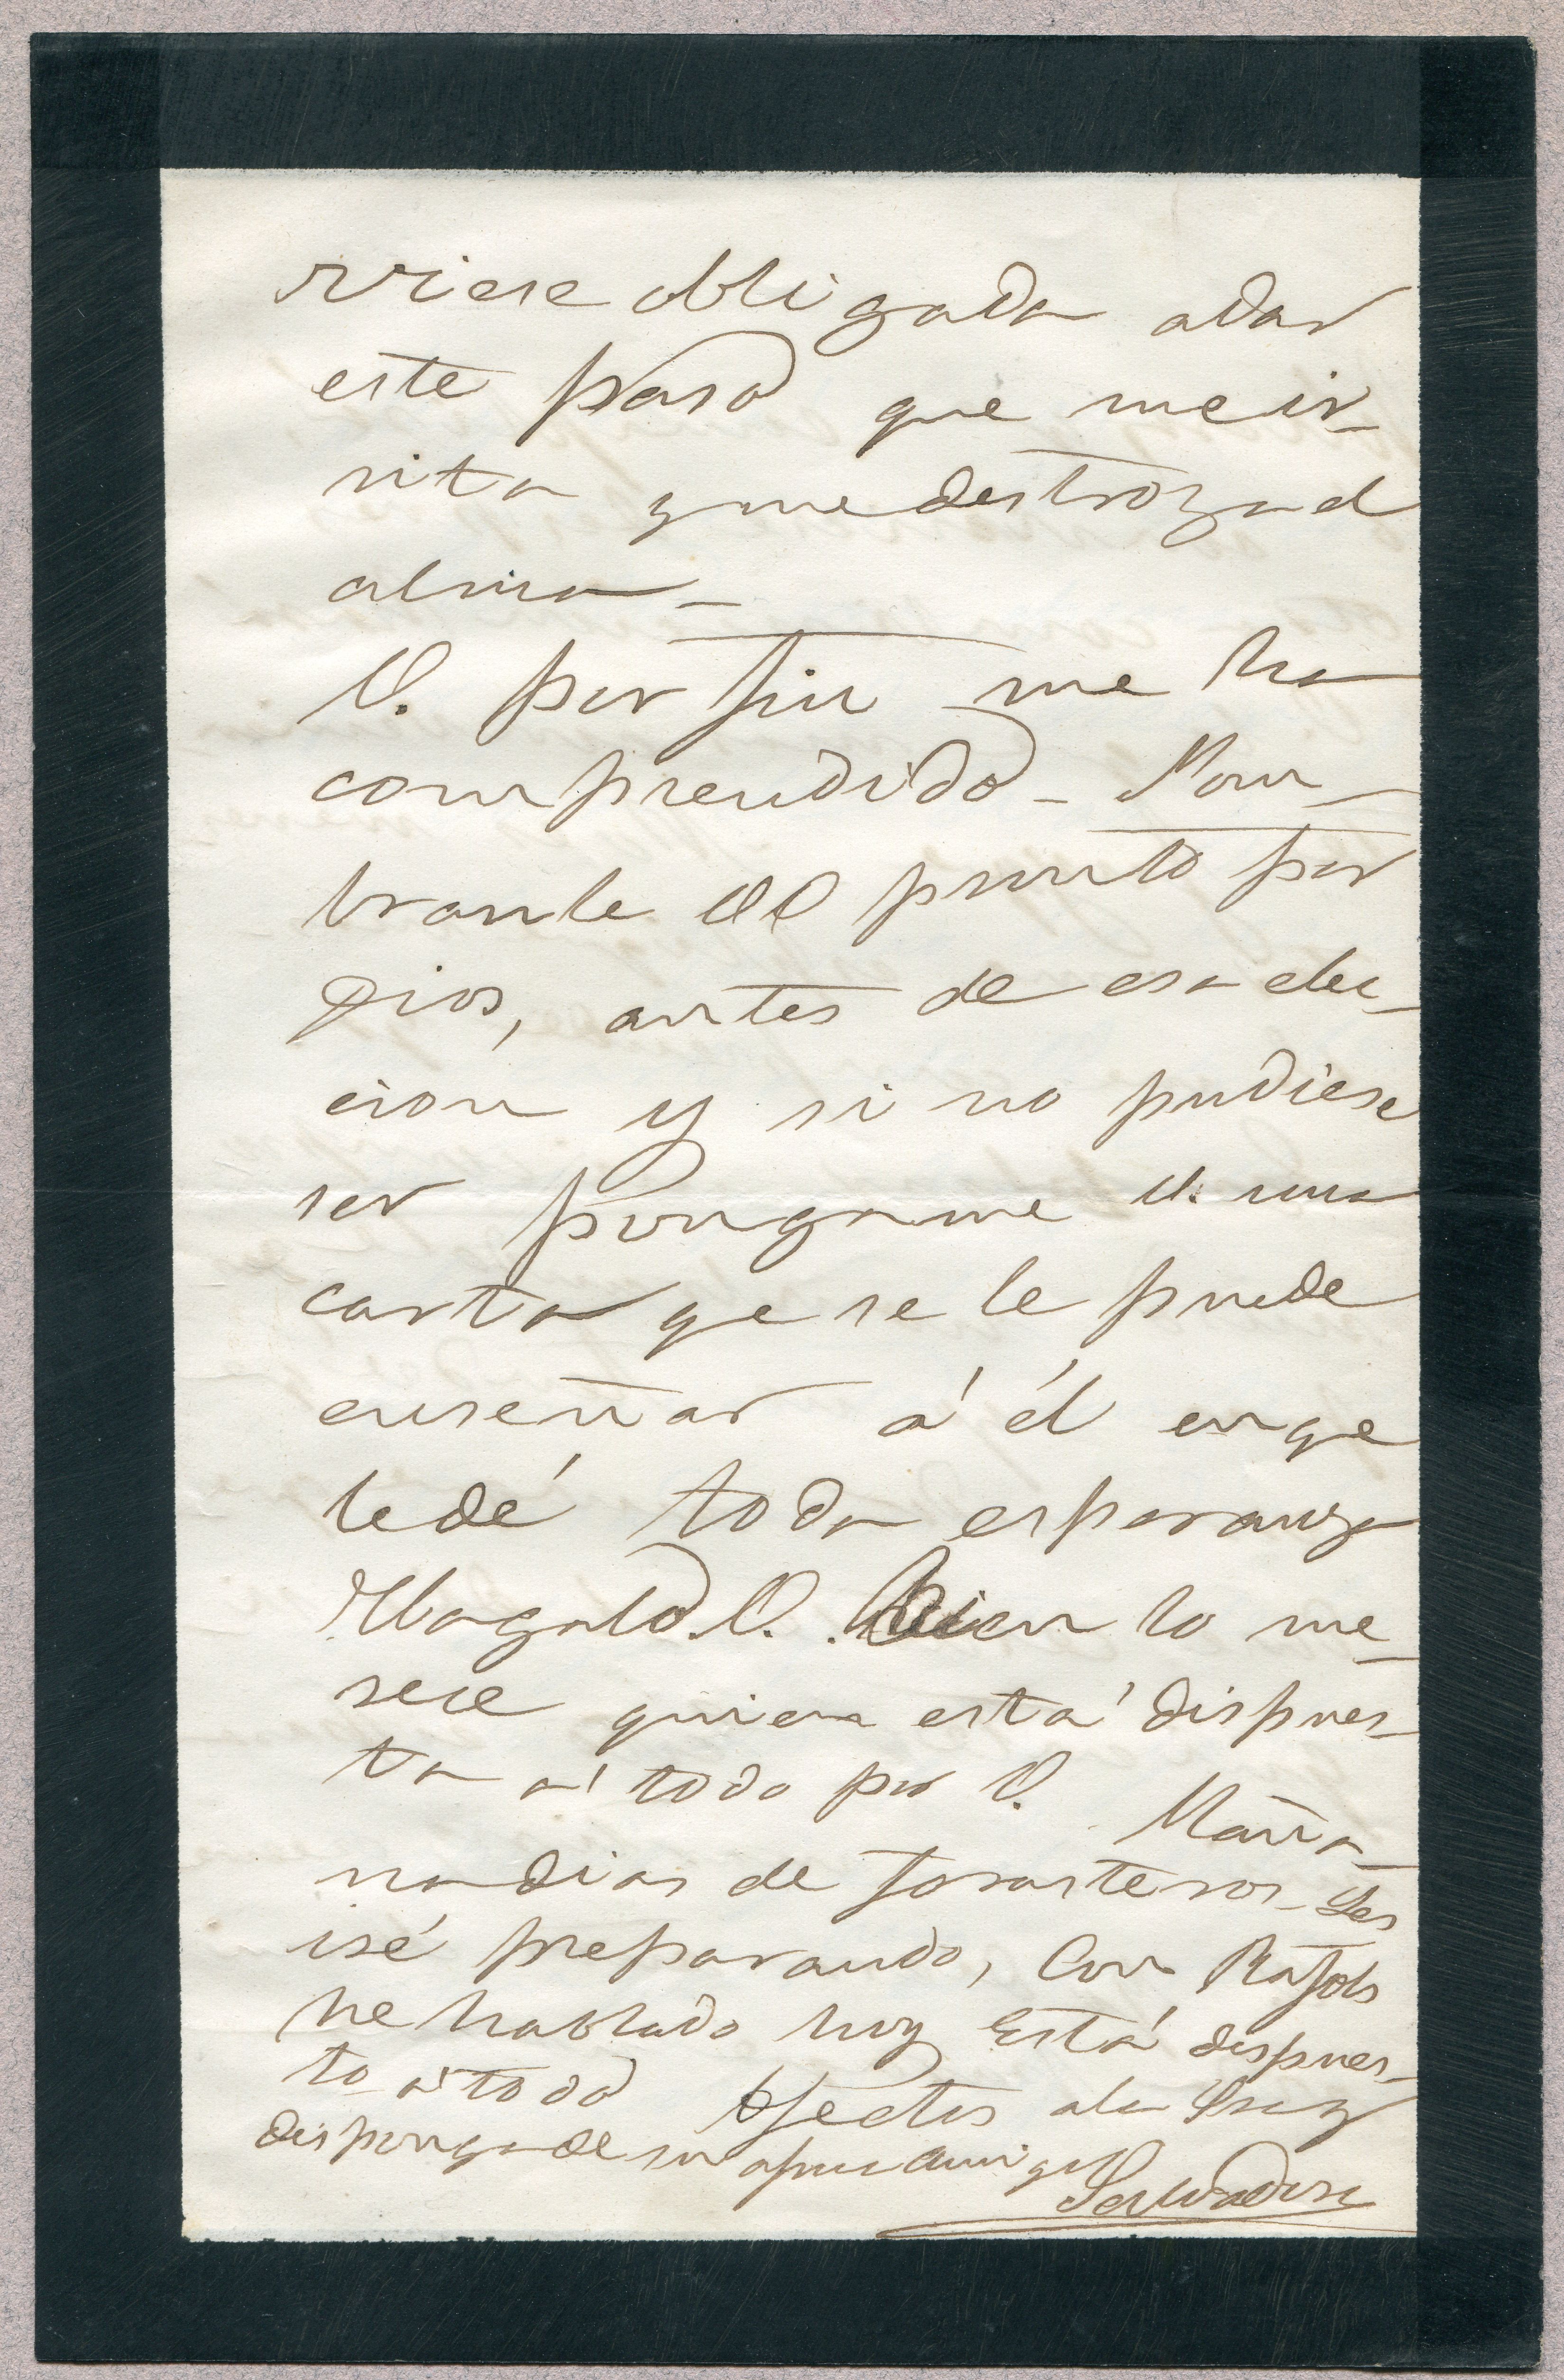 viese obligada adar
este paso que me ir-
rita y me destroza el
alma_
V. por fin me ha
comprendido_ Nom-
branle VV pronto por
Dios, antes de esa elec-
cion y si no pudiese
ser pongame V. una
carta qe se le puede
enseñar á él en qe
le dé toda esperanza
Hagalo V. Bien lo me-
rece quien está dispues-
ta á todo por V. Maña-
na dias de forasteros_ Les
iré preparando, Con Ráfols
he hablado hoy Está dispues-
to á todo Afectos a la
disponga de su afma amiga
Salvadora